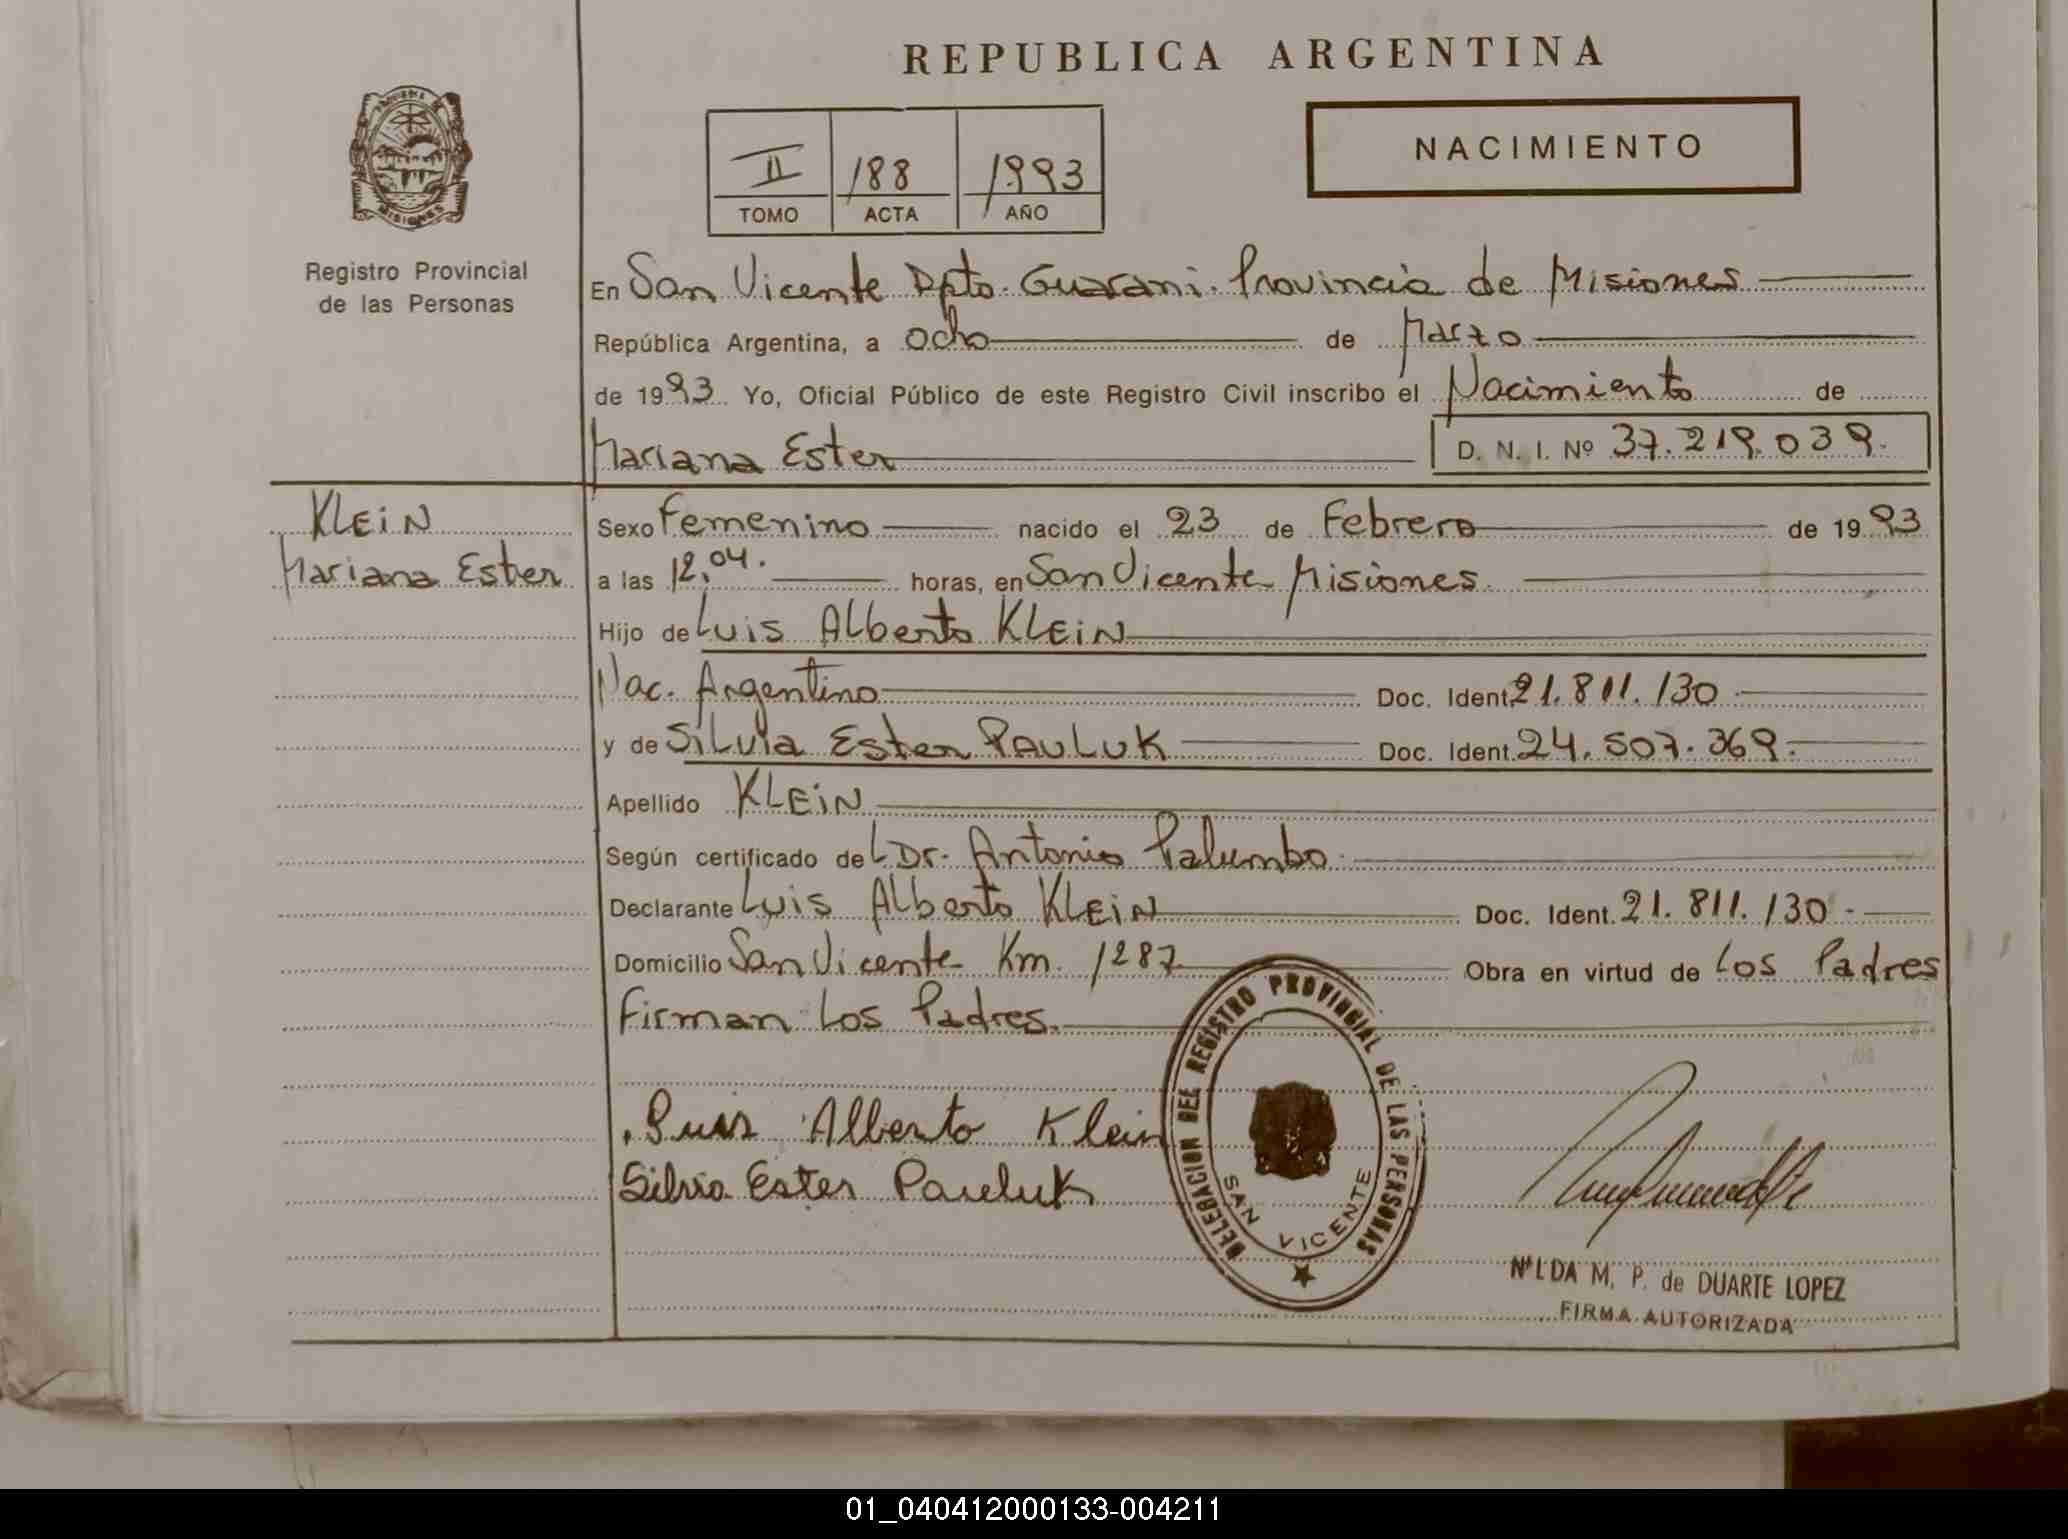 REPUBLICA ARGENTINA
PROVINCIA DE
MISIONES
Registro Provincial
de las Personas
II 188 1993
TOMO ACTA AÑO
NACIMIENTO
En San Vicente Dpto. Guarani. Provincia de Misiones
República Argentina, a ocho de Marzo
de 1993 Yo, Oficial Público de este Registro Civil inscribo el Nacimiento de
Mariana Ester D. N. I. Nº 37.219.039.
KLEiN
Mariana Ester
Sexo Femenino nacido el 23 de Febrero de 1993
a las 12,04. horas, en San Vicente Misiones.
Hijo de Luis Alberto KLEiN
Nac. Argentino Doc. Ident. 21.811.130
y de SiLvia Ester PAULUK Doc. Ident. 24.507.369.
Apellido KLEiN
Según certificado del Dr. Antonio Palumbo
Declarante Luis Alberto KLEiN Doc. Ident. 21.811.130.
Domicilio San Vicente Km. 1287 Obra en virtud de Los Padres
Firman Los Padres.
Luis Alberto Klein
Silvia Ester Pauluk
DELEGACION DEL REGISTRO PROVINCIAL DE LAS PERSONAS
SAN VICENTE
NILDA M. P. de DUARTE LOPEZ
FIRMA AUTORIZADA
01_040412000133-004211